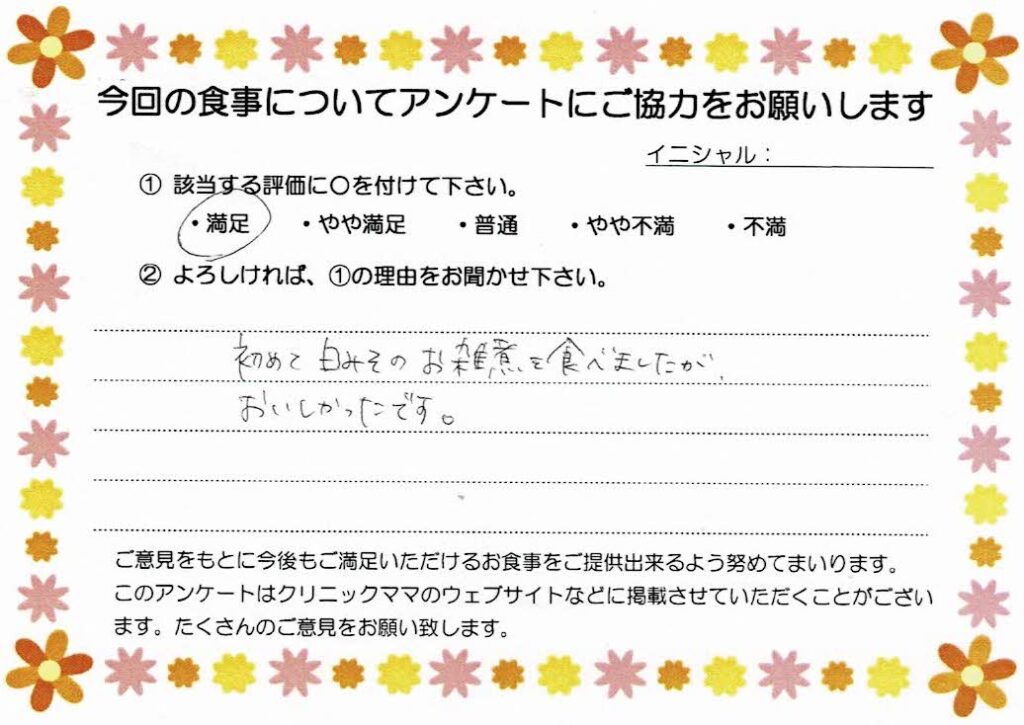 今回の食事についてアンケートにご協力をお願いします
イニシャル：
① 該当する評価に〇を付けて下さい。
・満足 ・やや満足 ・普通 ・やや不満 ・不満
② よろしければ、①の理由をお聞かせ下さい。
初めて白みそのお雑煮を食べましたが、
おいしかったです。
ご意見をもとに今後もご満足いただけるお食事をご提供出来るよう努めてまいります。
このアンケートはクリニックママのウェブサイトなどに掲載させていただくことがござい
ます。たくさんのご意見をお願い致します。